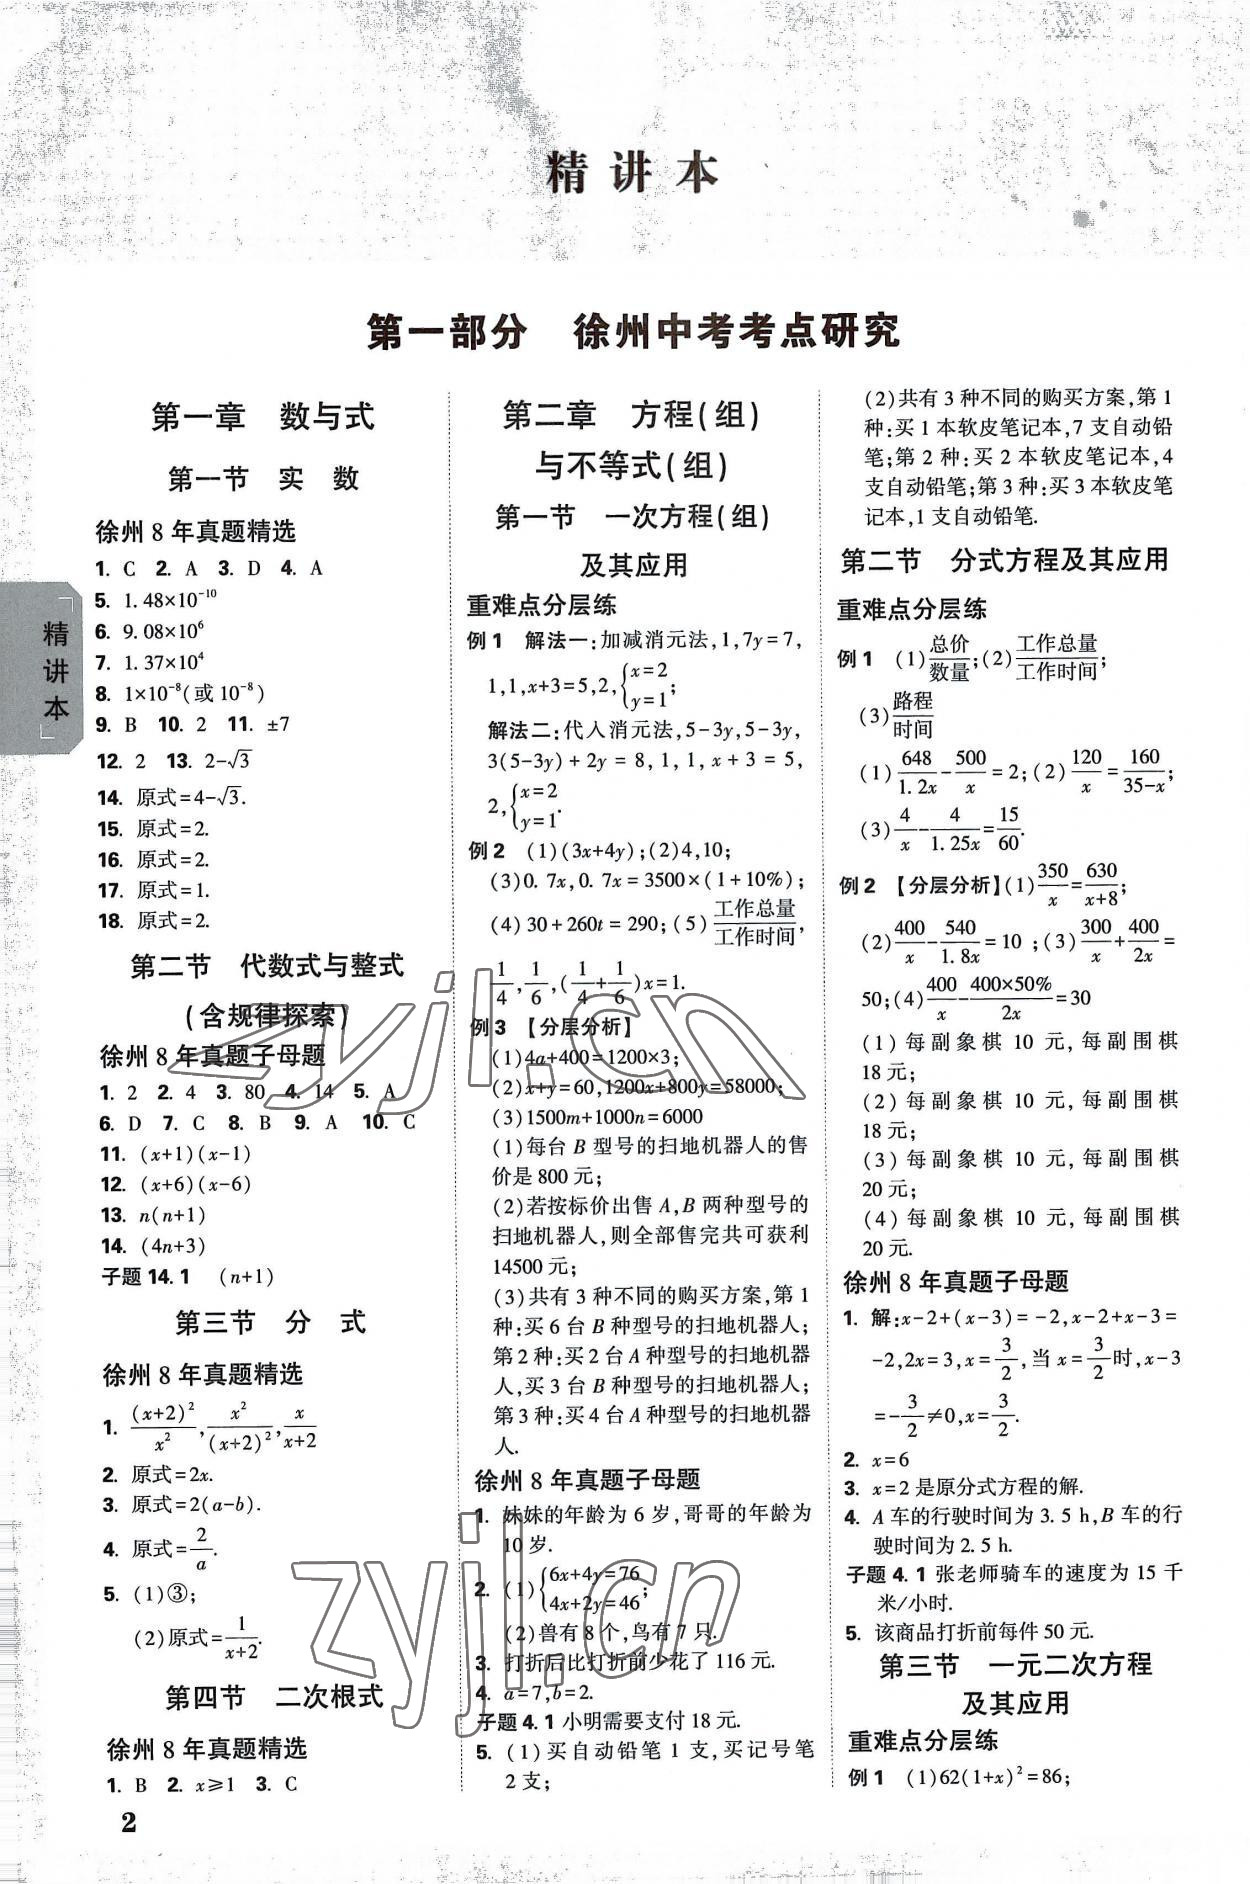 精讲本
第一部分 徐州中考考点研究
精讲本
第一章 数与式
第一节 实 数
徐州 8 年真题精选
1. C 2. A 3. D 4. A
5. 1.48×10⁻¹⁰
6. 9.08×10⁶
7. 1.37×10⁴
8. 1×10⁻⁸(或 10⁻⁸)
9. B 10. 2 11. ±7
12. 2 13. 2-√3
14. 原式=4-√3.
15. 原式=2.
16. 原式=2.
17. 原式=1.
18. 原式=2.
第二节 代数式与整式
(含规律探索)
徐州 8 年真题子母题
1. 2 2. 4 3. 80 4. 14 5. A
6. D 7. C 8. B 9. A 10. C
11. (x+1)(x-1)
12. (x+6)(x-6)
13. n(n+1)
14. (4n+3)
子题 14.1 (n+1)
第三节 分 式
徐州 8 年真题精选
1. (x+2)²/x², x²/(x+2)², x/(x+2)
2. 原式=2x.
3. 原式=2(a-b).
4. 原式=2/a.
5. (1)③;
(2)原式=1/(x+2).
第四节 二次根式
徐州 8 年真题精选
1. B 2. x≥1 3. C
2
第二章 方程(组)
与不等式(组)
第一节 一次方程(组)
及其应用
重难点分层练
例 1 解法一:加减消元法,1,7y=7,
1,1,x+3=5,2,{x=2 y=1;
解法二:代入消元法,5-3y,5-3y,
3(5-3y)+2y=8,1,1,x+3=5,
2,{x=2 y=1.
例 2 (1)(3x+4y);(2)4,10;
(3)0.7x,0.7x=3500×(1+10%);
(4)30+260t=290;(5)工作总量/工作时间,
1/4,1/6,(1/4+1/6)x=1.
例 3 【分层分析】
(1)4a+400=1200×3;
(2)x+y=60,1200x+800y=58000;
(3)1500m+1000n=6000
(1)每台 B 型号的扫地机器人的售
价是 800 元;
(2)若按标价出售 A,B 两种型号的
扫地机器人,则全部售完共可获利
14500 元;
(3)共有 3 种不同的购买方案,第 1
种:买 6 台 B 种型号的扫地机器人;
第 2 种:买 2 台 A 种型号的扫地机器
人,买 3 台 B 种型号的扫地机器人;
第 3 种:买 4 台 A 种型号的扫地机器
人.
徐州 8 年真题子母题
1. 妹妹的年龄为 6 岁,哥哥的年龄为
10 岁.
2. (1){6x+4y=76 4x+2y=46;
(2)兽有 8 个,鸟有 7 只.
3. 打折后比打折前少花了 116 元.
4. a=7,b=2.
子题 4.1 小明需要支付 18 元.
5. (1)买自动铅笔 1 支,买记号笔
2 支;
(2)共有 3 种不同的购买方案,第 1
种:买 1 本软皮笔记本,7 支自动铅
笔;第 2 种:买 2 本软皮笔记本,4
支自动铅笔;第 3 种:买 3 本软皮笔
记本,1 支自动铅笔.
第二节 分式方程及其应用
重难点分层练
例 1 (1)总价/数量;(2)工作总量/工作时间;
(3)路程/时间
(1)648/1.2x-500/x=2;(2)120/x=160/(35-x);
(3)4/x-4/1.25x=15/60.
例 2 【分层分析】(1)350/x=630/(x+8);
(2)400/x-540/1.8x=10 ;(3)300/x+400/2x=
50;(4)400/x-400×50%/2x=30
(1)每副象棋 10 元,每副围棋
18 元;
(2)每副象棋 10 元,每副围棋
18 元;
(3)每副象棋 10 元,每副围棋
20 元;
(4)每副象棋 10 元,每副围棋
20 元.
徐州 8 年真题子母题
1. 解:x-2+(x-3)=-2,x-2+x-3=
-2,2x=3,x=3/2,当 x=3/2时,x-3
=-3/2≠0,x=3/2.
2. x=6
3. x=2 是原分式方程的解.
4. A 车的行驶时间为 3.5 h,B 车的行
驶时间为 2.5 h.
子题 4.1 张老师骑车的速度为 15 千
米/小时.
5. 该商品打折前每件 50 元.
第三节 一元二次方程
及其应用
重难点分层练
例 1 (1)62(1+x)²=86;
zyjl.cn
zyjl.cn